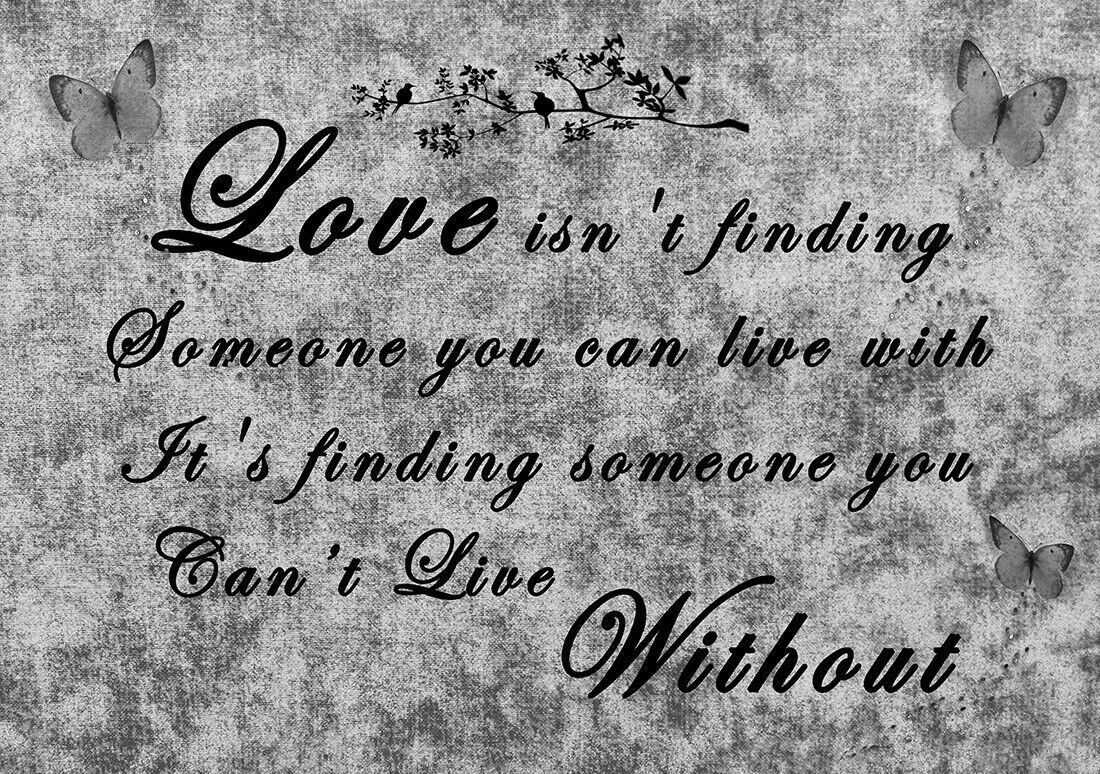 Love isn't finding
Someone you can live with
It's finding someone you
Can't Live
Without